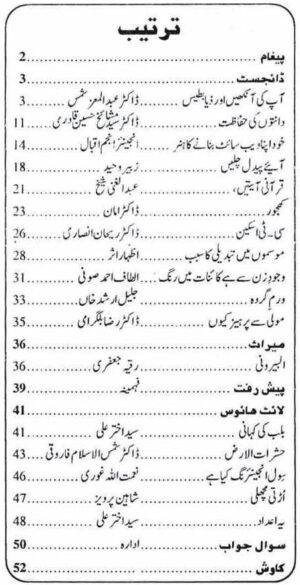 ترتیب
پیغام 2
ڈائجسٹ 3
آپ کی آنکھیں اور ذیابطیس ڈاکٹر عبدالمعز شمس 3
دانتوں کی حفاظت ڈاکٹر سید شائع حسین قادری 11
خود اپنا ویب سائٹ بنانے کا ہنر انجینئر انجم اقبال 14
آیئے پیدل چلیں زبیر وحید 18
قرآنی آیتیں، عبدالغنی شیخ 21
کھجور ڈاکٹر امان 23
سی۔ٹی اسکین ڈاکٹر ریحان انصاری 26
موسموں میں تبدیلی کا سبب اظہار اثر 28
وجود زن سے ہے کائنات میں رنگ الطاف احمد صوفی 31
ورم گردہ جلیل ارشد خاں 33
مولی سے پرہیز کیوں ڈاکٹر رضا بلگرامی 35
میراث 36
البیرونی رقیہ جعفری 36
پیش رفت فہمینہ 39
لائٹ ھائوس 41
بلب کی کہانی سید اختر علی 41
حشرات الارض ڈاکٹر شمس الاسلام فاروقی 43
سول انجینئرنگ کیا ہے نعمت اللہ غوری 46
اُڑتی مچھلی شاہین پرویز 47
یہ اعداد سید اختر علی 48
سوال جواب ادارہ 50
کاوش 52